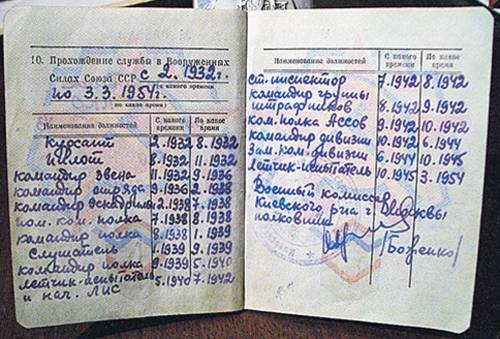 10. Прохождение службы в Вооруженных
Силах Союза ССР с 2. 1932г.
(с какого времени
по 3.3.1954г.
по какое время)
Наименование должностей С какого времени По какое время
Курсант 2.1932 8.1932
Пилот 8.1932 11.1932
командир звена 11.1932 9.1936
командир отряда 9.1936 2.1938
командир эскадрильи 2.1938 7.1938
пом. ком. полка 7.1938 8.1938
командир полка 8.1938 1.1939
Слушатель 1.1939 9.1939
командир полка 9.1939 5.1940
летчик-испытатель 5.1940 7.1942
и нач. ЛИС
Наименование должностей С какого времени По какое время
ст. инспектор 7.1942 8.1942
командир группы
штрафников 8.1942 9.1942
ком. полка Ассов 9.1942 10.1942
командир дивизии 10.1942 6.1944
Зам. ком. дивизии 6.1944 10.1945
летчик-испытатель 10.1945 3.1954
Военный комиссар
Киевского р-на г. Москвы
полковник
/Боженко/